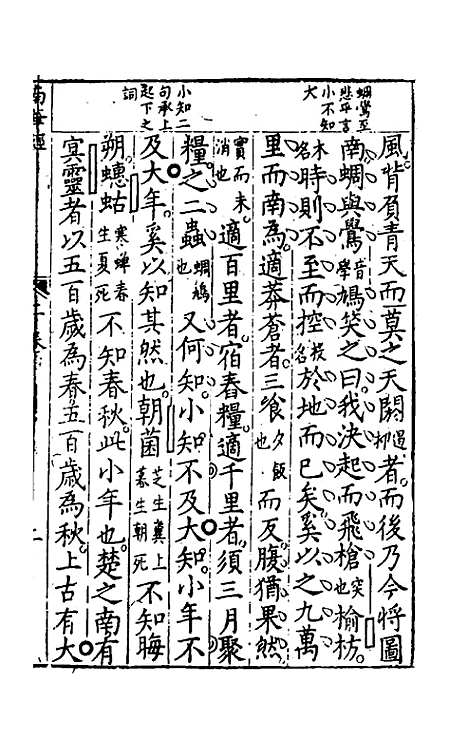 蜩鸒至
悲乎言
小不知
大
小知二
句承上
起下之
詞
風背負青天而莫之夭閼遏者而後乃今將圖
南蜩與鸒音學鳩笑之曰我決起而飛槍突也榆枋
木名時則不至而控投名於地而已矣奚以之九萬
里而南為適莽蒼者三飡夕飯也而反腹猶果然
實而未消也適百里者宿舂糧適千里者須三月聚
糧之二蟲蜩鳩也又何知小知不及大知小年不
及大年奚以知其然也朝菌芝生糞上暮生朝死不知晦
朔蟪蛄寒蟬春生夏死不知春秋此小年也楚之南有
冥靈者以五百歲為春五百歲為秋上古有大
南華經